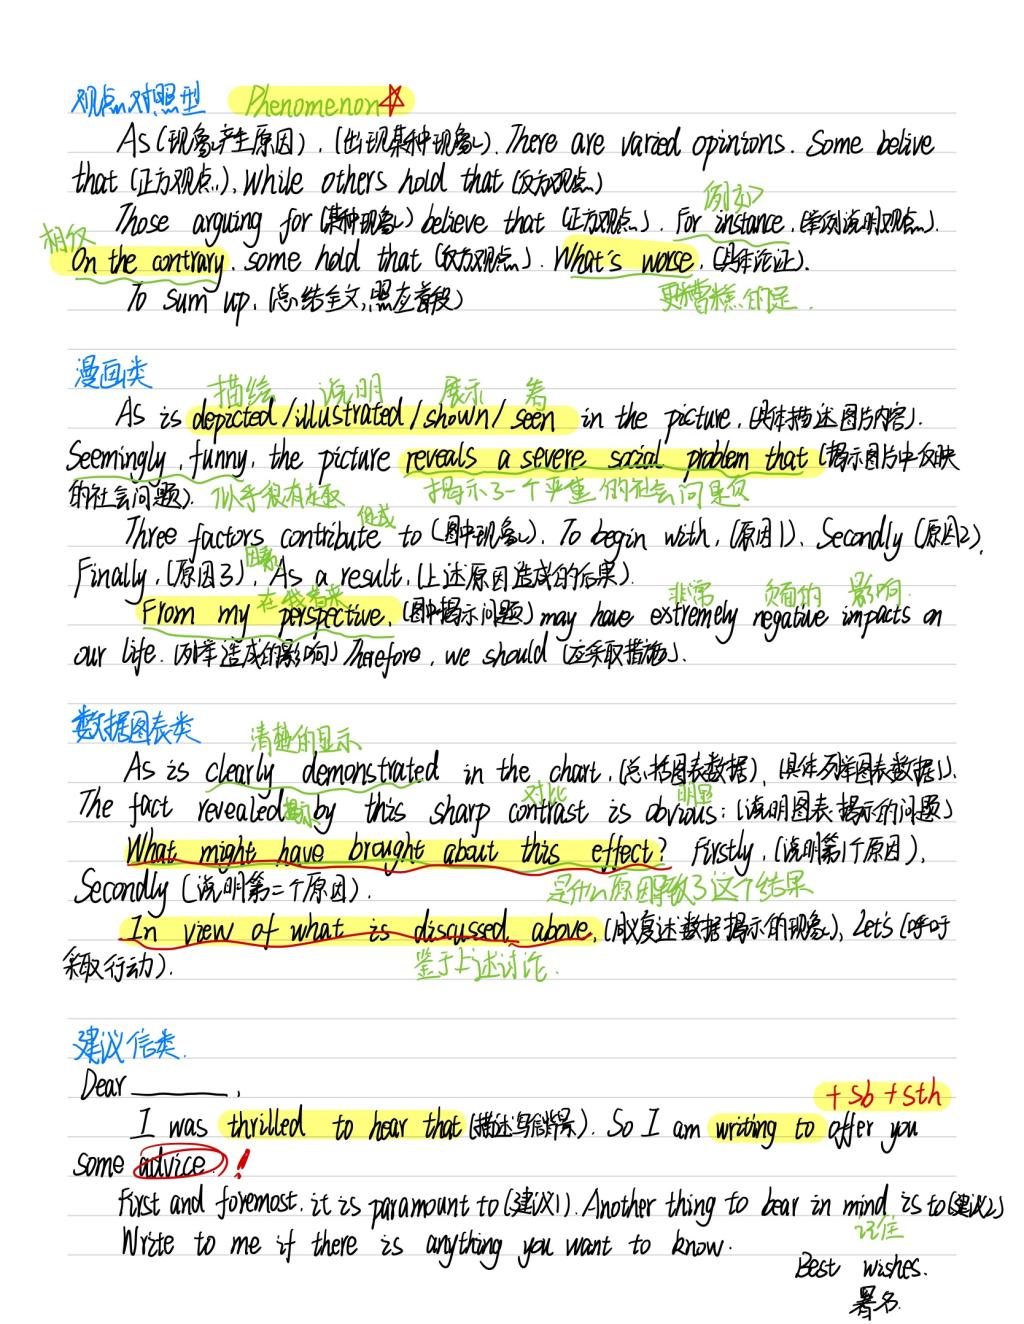 观点对照型 Phenomenon
As (现象产生原因), (出现某种现象). There are varied opinions. Some belive
that (正方观点), While others hold that (反方观点)
例如
Those arguing for (某种现象) believe that (正方观点). For instance, (举例说明观点).
相反
On the contrary, some hold that (反方观点). What's worse, (具体论证).
To sum up, (总结全文,照应首段)
更糟糕的是.
漫画类
描绘 说明 展示 看
As is depicted/illustrated/shown/seen in the picture, (具体描述图片内容).
Seemingly funny, the picture reveals a severe social problem that (揭示图片中反映
的社会问题). 似乎很有趣 揭示了一个严重的社会问题
促成
Three factors contribute to (图中现象). To begin with, (原因1). Secondly (原因2),
因素
Finally, (原因3), As a result, (上述原因造成的后果).
在我看来 非常 负面的 影响
From my perspective, (图中揭示问题) may have extremely negative impacts on
our life. (列举造成的影响) Therefore, we should (应采取措施).
数据图表类
清楚的显示
As is clearly demonstrated in the chart, (总括图表数据), (具体列举图表数据).
对比 明显
The fact revealed 揭示 by this sharp contrast is obvious: (说明图表揭示的问题)
What might have brought about this effect? Firstly, (说明第1个原因),
Secondly (说明第二个原因).
是什么原因导致了这个结果
In view of what is discussed above, (复述数据揭示的现象), Let's (呼吁
采取行动).
鉴于上述讨论.
建议信类.
Dear ______,
+sb +sth
I was thrilled to hear that (描述写信背景). So I am writing to offer you
some advice. !
First and foremost, it is paramount to (建议1). Another thing to bear in mind is to (建议2)
记住
Write to me if there is anything you want to know.
Best wishes.
署名.